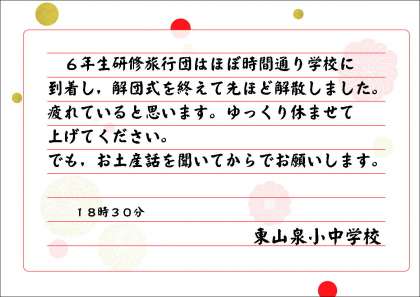 ６年生研修旅行団はほぼ時間通り学校に
到着し，解団式を終えて先ほど解散しました。
疲れていると思います。ゆっくり休ませて
上げてください。
でも，お土産話を聞いてからでお願いします。
１８時３０分
東山泉小中学校